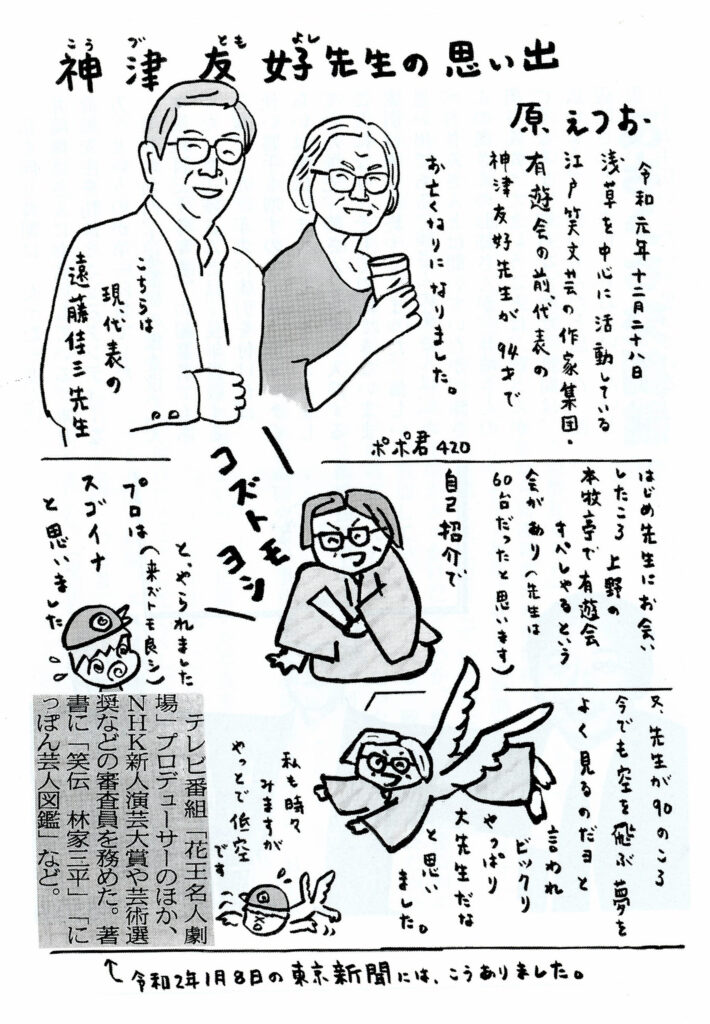 神津友好先生の思い出
こうづともよし
原えつお
令和元年十二月二十八日
浅草を中心に活動している
江戸笑文芸の作家集団・
有遊会の前代表の
神津友好先生が94才で
お亡くなりになりました。
こちらは
現代表の
遠藤佳三先生
ポポ君420
はじめ先生にお会い
したころ上野の
本牧亭で有遊会
すぺしゃるという
会があり(先生は
60台だったと思います)
自己紹介で
コズトモ
ヨシ
と、やられました
(来ズトモ良シ)
プロは
スゴイナ
と思いました
又、先生が90のころ
今でも空を飛ぶ夢を
よく見るのだヨと
言われ
ビックリ
やっぱり
大先生だな
と思い
ました。
私も時々
みますが
やっとで低空
です
テレビ番組「花王名人劇
場」プロデューサーのほか、
NHK新人演芸大賞や芸術選
奨などの審査員を務めた。著
書に「笑伝 林家三平」「に
っぽん芸人図鑑」など。
↑令和2年1月8日の東京新聞には、こうありました。